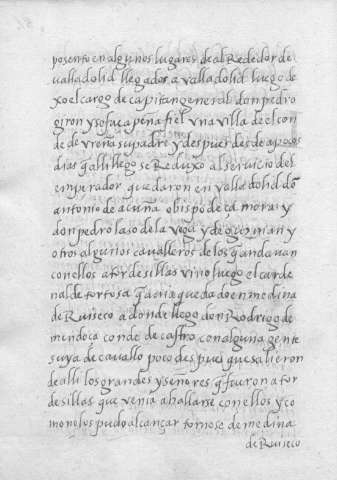 posento en algunos lugares de al Rededor de
valladolid llegados a valladolid luego de
xo el cargo de capitan general don pedro
giron y se fue a peñafiel vna villa del con
de de vreña su padre y despues desde a pocos
dias q alli llego se Reduxo al seruicio del
emperador quedaron en valladolid dõ
antonio de acuña obispo de çamora y
don pedro laso de la vega y de guzman y
otros algunos caualleros de los q andauan
con ellos a tordesillas vino luego el carde
nal de tortosa q auia quedado en medina
de Ruiseco a donde llego don Rodrigo de
mendoça conde de castro con alguna gente
suya de cauallo poco despues que salieron
de alli los grandes y señores q fueron a tor
desillas que venia a hallarse con ellos y co
mo no los pudo alcançar tornose de medina
de Ruiseco